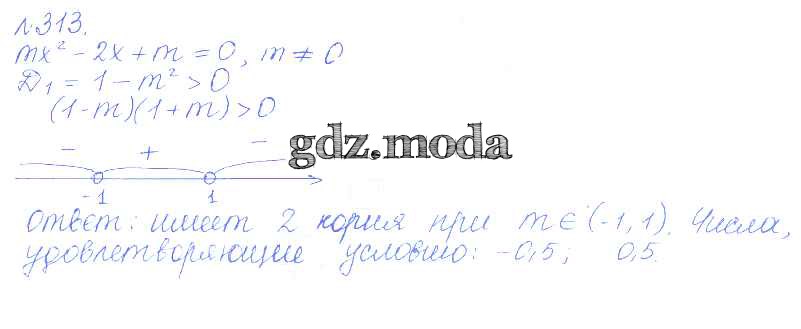 №313.
mx² - 2x + m = 0, m ≠ 0
D₁ = 1 - m² > 0
(1-m)(1+m) > 0
- + -
gdz.moda
-1 1
Ответ: имеет 2 корня при m ∈ (-1, 1). Числа,
удовлетворяющие условию: -0,5; 0,5.